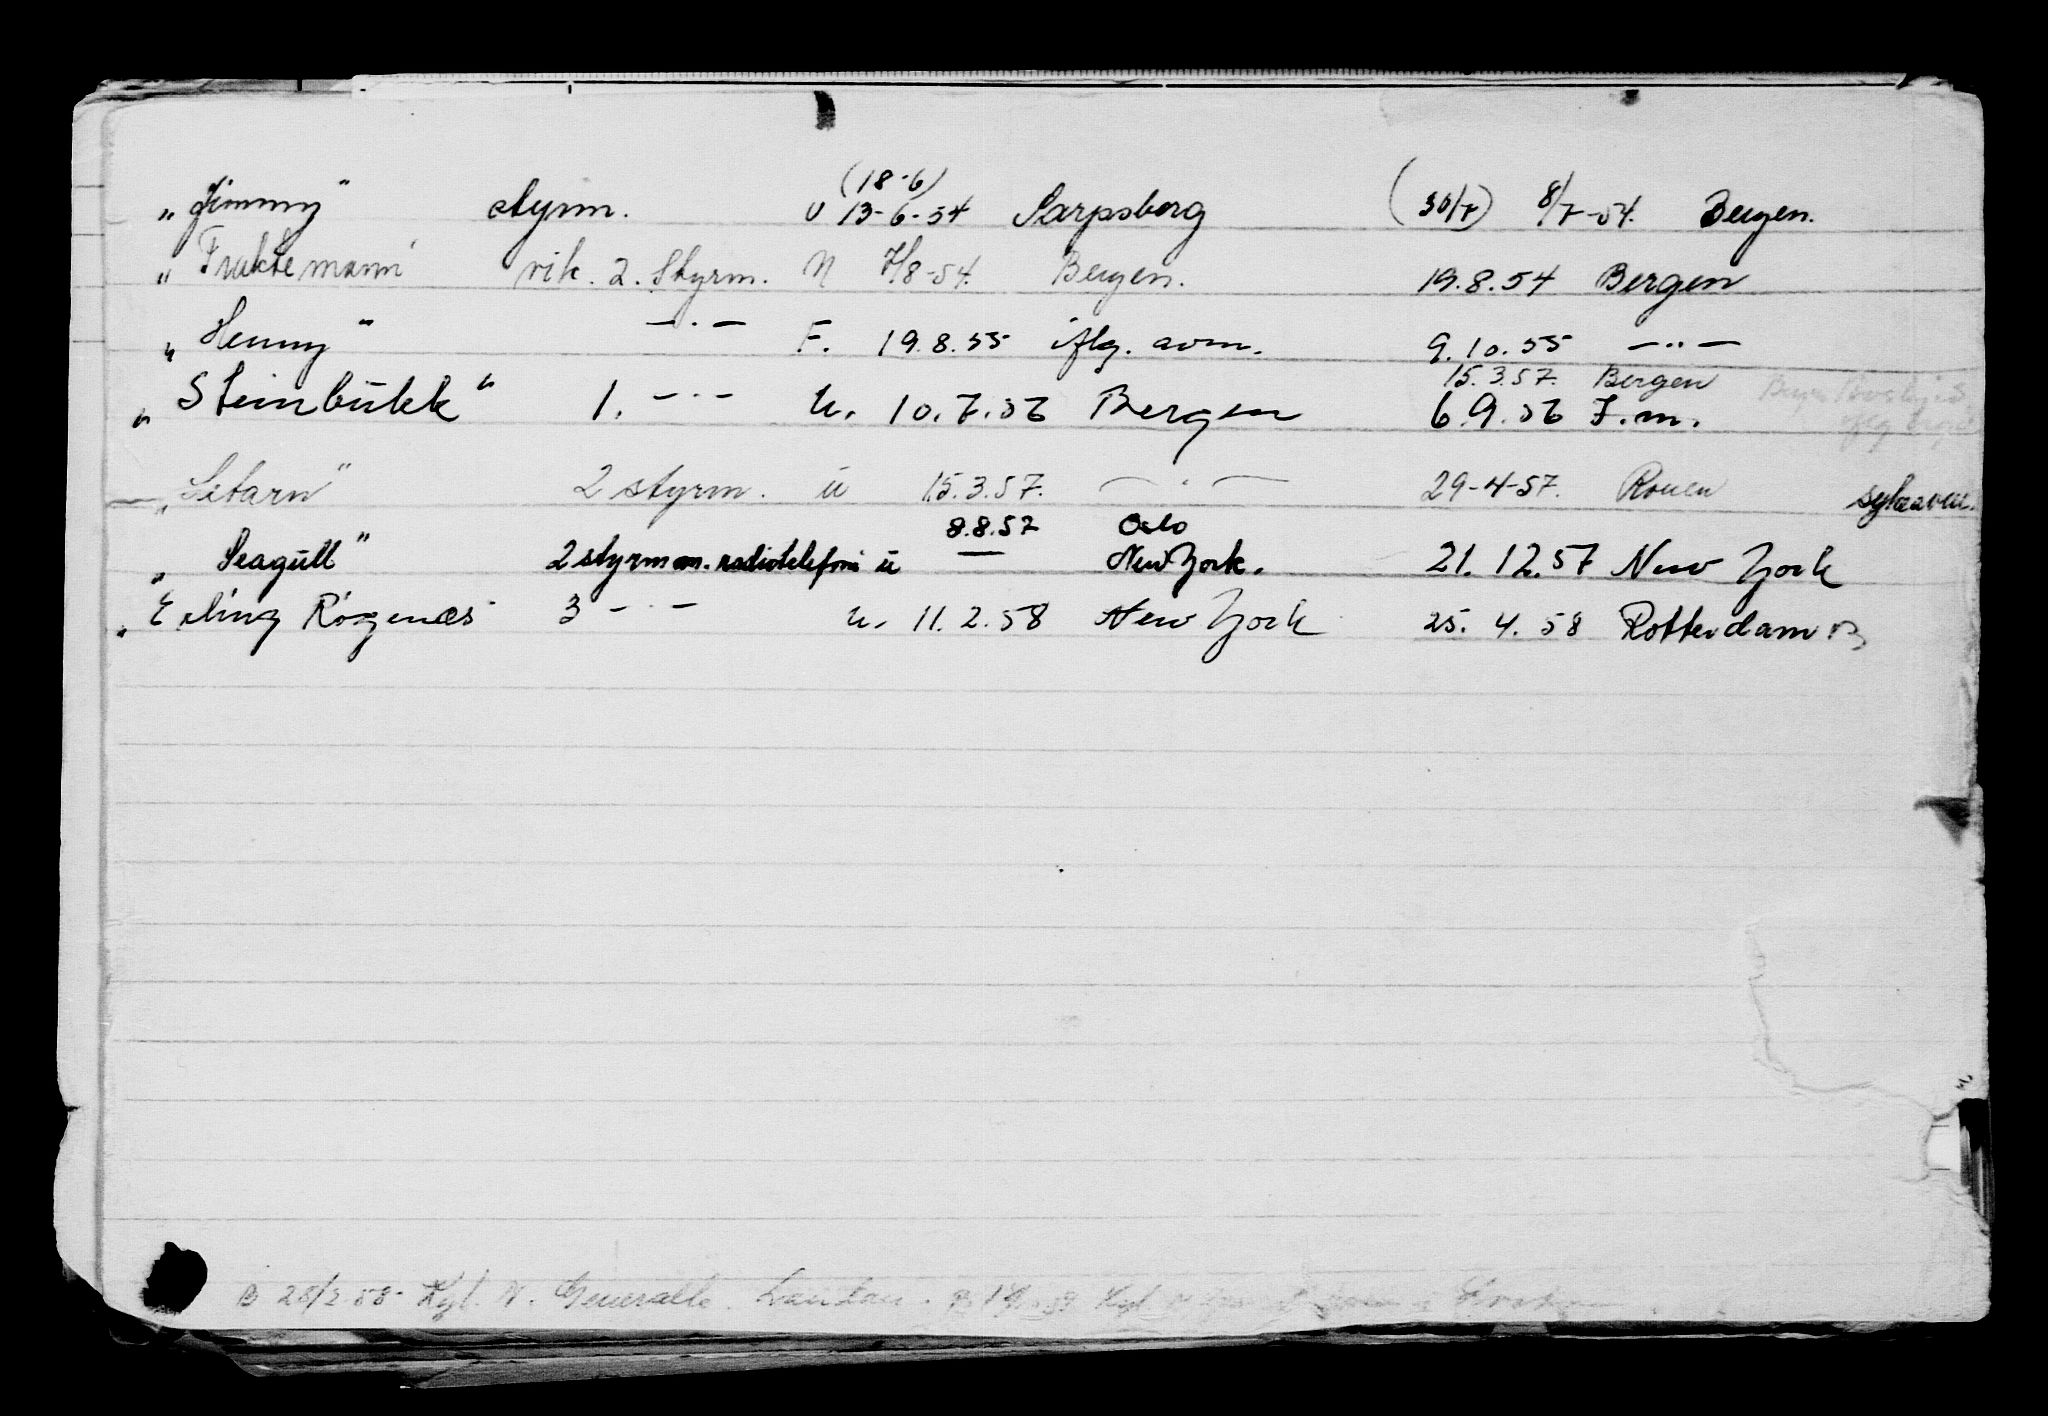 (18-6)
„Jimmy" styrm. U 13-6-54 Sarpsborg (30/7) 8/7-54. Bergen.
„Fruktemann" vik. 2. Styrm. N 7/8-54. Bergen. 19.8.54 Bergen
„Henny" —·— F. 19.8.55 iflg. avm. 9.10.55 —··—
15.3.57. Bergen
„Steinbukk" 1. —·— u. 10.7.56 Bergen 6.9.56 F.m.
„Sitarn" 2 styrm. u 15.3.57. —·— 29-4-57. Rouen sykeavm.
8.8.57 Oslo
„Seagull" 2 styrm m. radiotelefoni u — New York. 21.12.57 New York
„Erling Røgenæs" 3 —·— u. 11.2.58 New York 25.4.58 Rotterdam B
B 28/2 58- Kgl. N. Generalk. London.